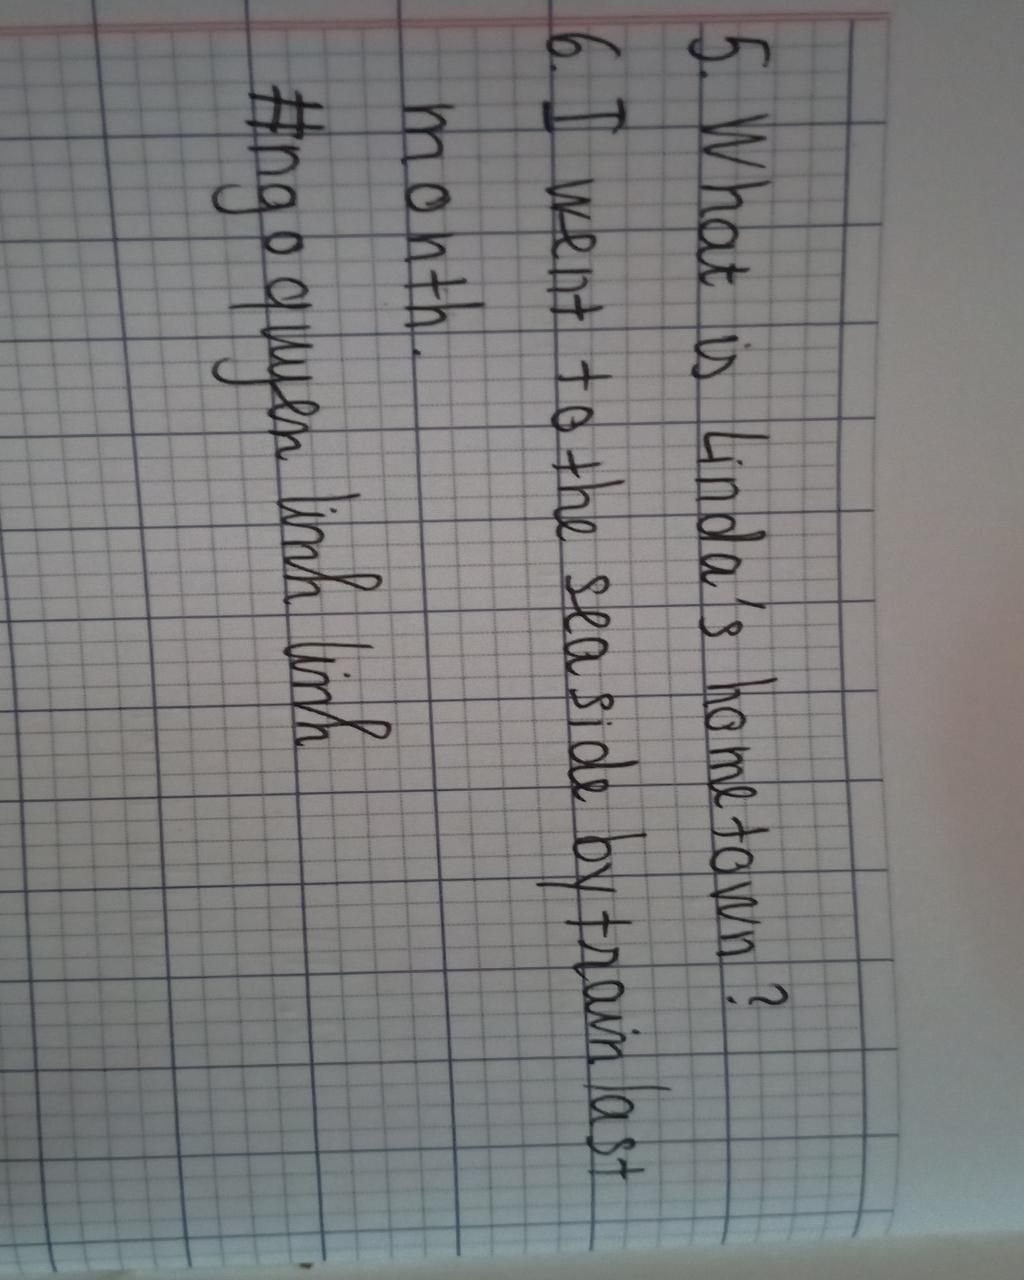 5. What is Linda's hometown?
6. I went to the seaside by train last
month.
#ngoquyen linh linh